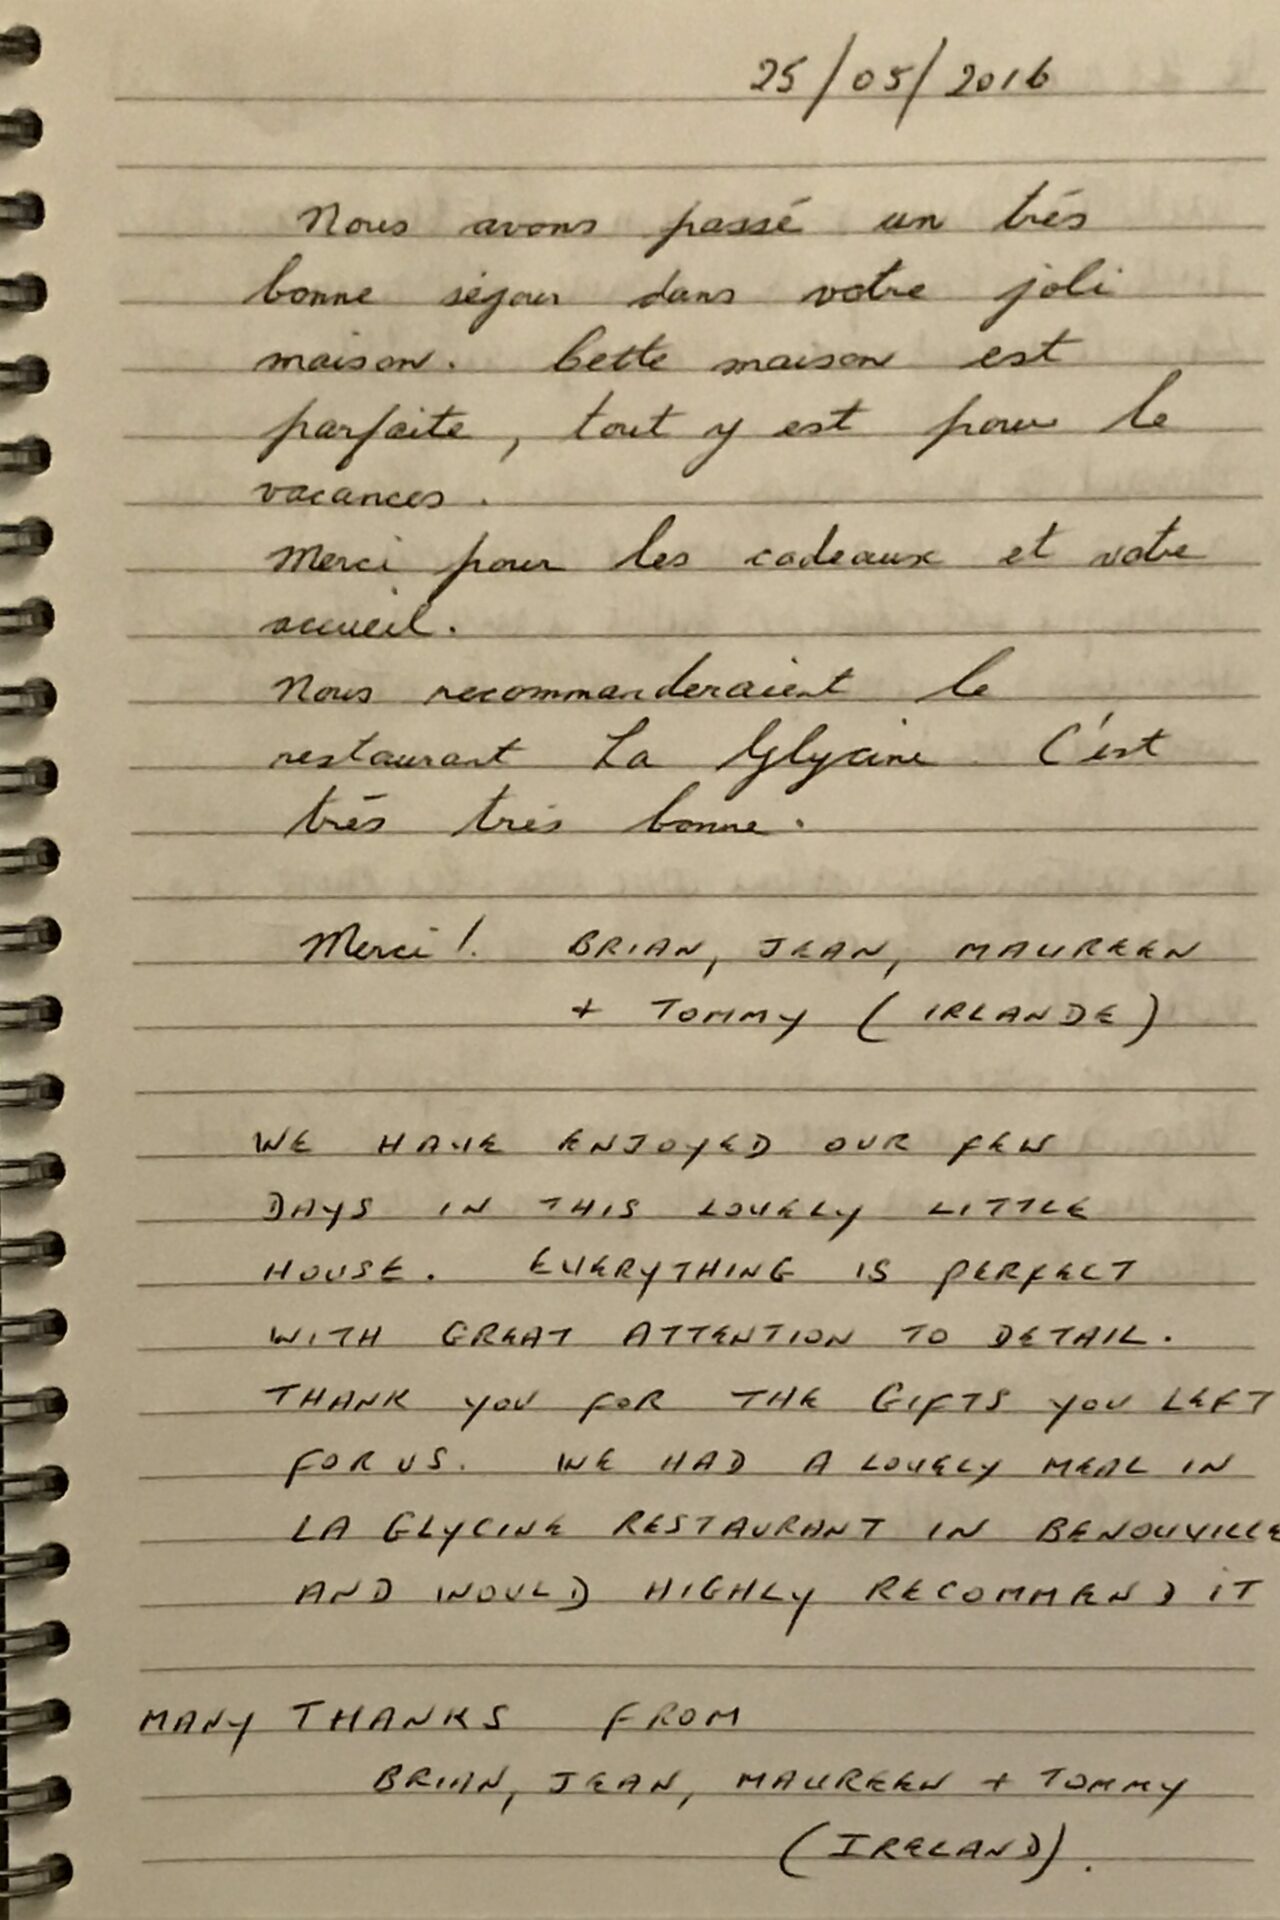 25/05/2016
Nous avons passé un très
bonne séjour dans votre joli
maison. Cette maison est
parfaite, tout y est pour le
vacances.
Merci pour les cadeaux et votre
accueil.
Nous recommanderaient le
restaurant La Glycine. C'est
très très bonne.
Merci! BRIAN, JEAN, MAUREEN
+ TOMMY (IRLANDE)
WE HAVE ENJOYED OUR FEW
DAYS IN THIS LOVELY LITTLE
HOUSE. EVERYTHING IS PERFECT
WITH GREAT ATTENTION TO DETAIL.
THANK YOU FOR THE GIFTS YOU LEFT
FOR US. WE HAD A LOVELY MEAL IN
LA GLYCINE RESTAURANT IN BENOUVILLE
AND WOULD HIGHLY RECOMMEND IT
MANY THANKS FROM
BRIAN, JEAN, MAUREEN + TOMMY
(IRELAND).